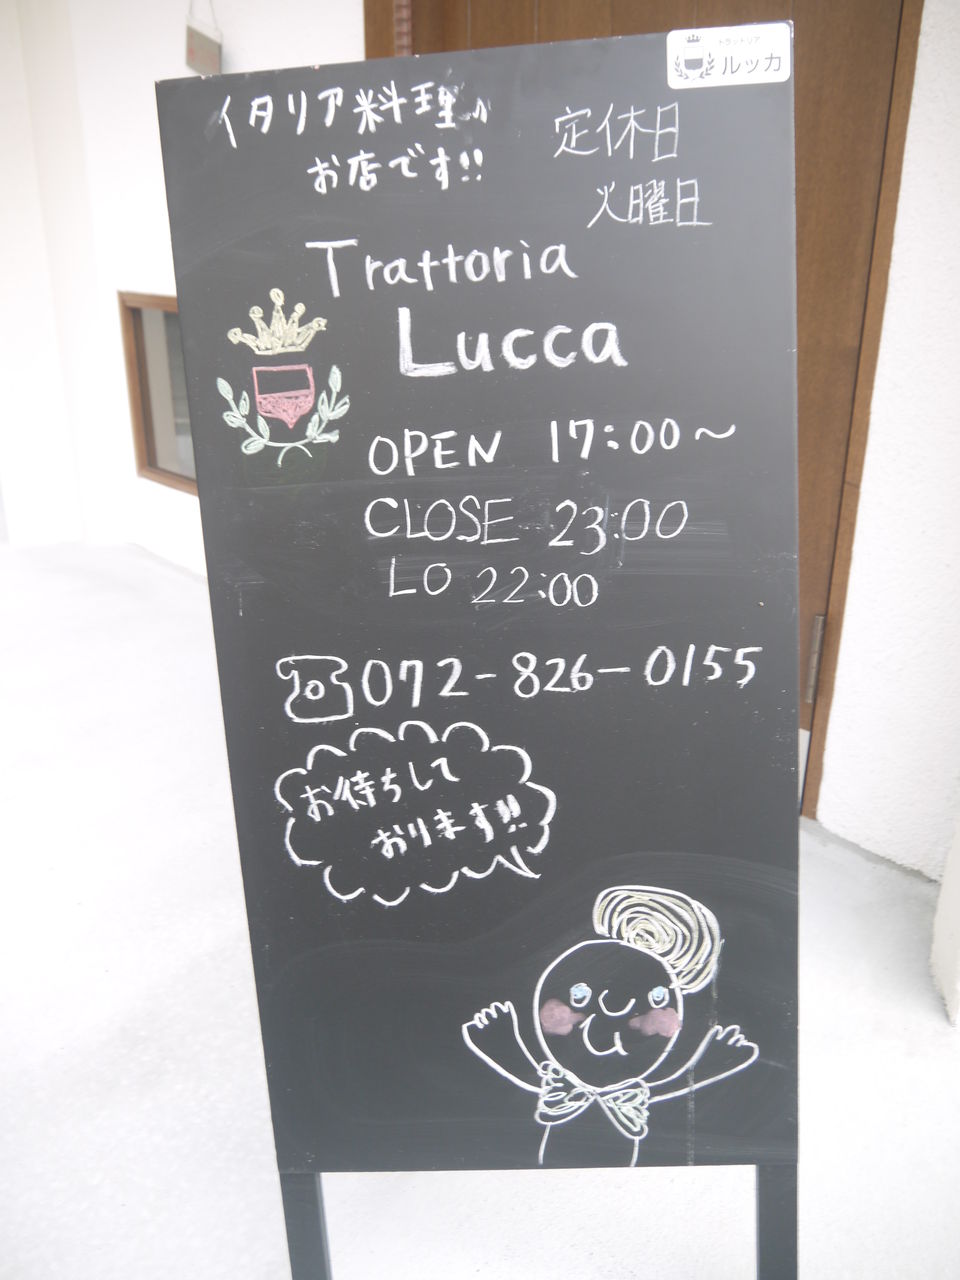 トラットリア
ルッカ
イタリア料理の
お店です!!
定休日
火曜日
Trattoria
Lucca
OPEN 17:00~
CLOSE 23:00
LO 22:00
072-826-0155
お待ちして
おります!!